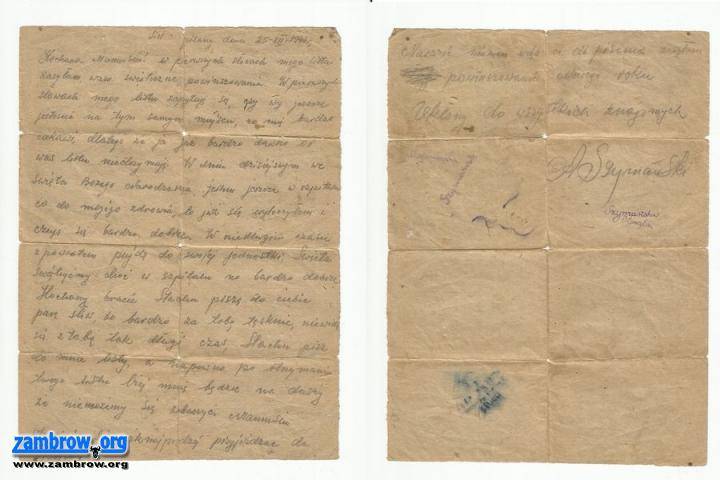 dnia 25-XII-194
Kochana Mamusiu w pierwszych słowach mego listu
zasyłam wam świąteczne powinszowania. W pierwszych
słowach mego listu zapytuję się, czy wy jeszcze
jesteście na tym samym miejscu, co mię bardzo
ciekawi, dlatego że ja już bardzo dawno od
was listu nieotrzymuję. W dniu dzisiejszym we
święta Bożego Narodzenia jestem jeszcze w szpitalu
co do mojego zdrowia, to już się wyleczyłem i
czuję się bardzo dobrze. W niedługim czasie
z powrotem pójdę do swojej jednostki. Święta
choć w szpitalu no bardzo dobrze
Kochany bracie Stachu piszę do ciebie
parę słów bo bardzo za tobą tęsknię,
się z tobą tak długi czas, Stachu pisz
do mnie listy, a napewno po otrzymaniu
twego listu lżej mnie będzie na duszy
że niemożemy się zobaczyć
przyjeżdżać do
powinszowania nowego roku
Ukłony do wszystkich znajomych
A Szymański
Szymańska
zambrow.org
www.zambrow.org